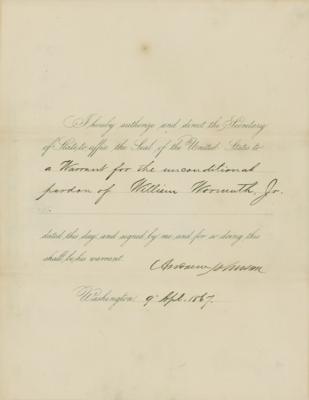 I hereby authorize and direct the Secretary
of State to affix the Seal of the United States to
a Warrant for the unconditional
pardon of William Wormuth, Jr.
dated this day, and signed by me, and for so doing this
shall be his warrant.
Andrew Johnson
Washington, 9 Apl. 1867.